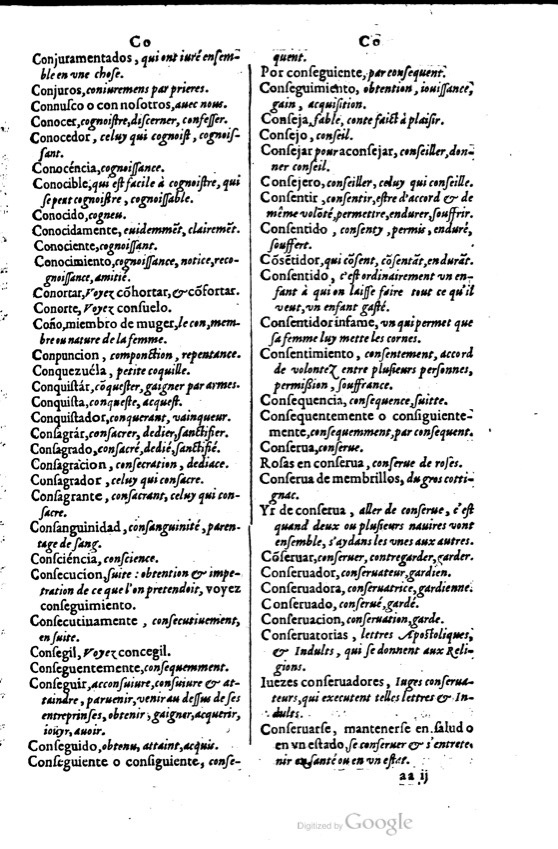 Co
Conjuramentados, qui ont iuré ensem-
ble en vne chose.
Conjuros, coniuremens par prieres.
Connusco o con nosotros, auec nous.
Conocer, cognoistre, discerner, confesser.
Conocedor, celuy qui cognoist, cognois-
sant.
Conocécia, cognoissance.
Conocible, qui est facile à cognoistre, qui
se peut cognoistre, cognoissable.
Conocido, cogneu.
Conocidamente, euidemmẽt, clairemẽt.
Conociente, cognoissant.
Conocimiento, cognoissance, notice, reco-
gnoissance, amitié.
Conortar, Voyez cõhortar, & cõfortar.
Conorte, Voyez consuelo.
Coño, miembro de muger, le con, mem-
bre ou nature de la femme.
Conpuncion, componction, repentance.
Conquezuéla, petite coquille.
Conquistár, cõquester, gaigner par armes.
Conquista, conqueste, acquest.
Conquistador, conquerant, vainqueur.
Consagrár, consacrer, dedier, sanctifier.
Consagrado, consacré, dedié, sanctifié.
Consagracion, consecration, dediace.
Consagrador, celuy qui consacre.
Consagrante, consacrant, celuy qui con-
sacre.
Consanguinidad, consanguinité, paren-
tage de sang.
Consciéncia, conscience.
Consecucion, suite : obtention & impe-
tration de ce que l'on pretendoit, voyez
conseguimiento.
Consecutinamente, consecutiuement,
en suite.
Consegil, Voyez concegil.
Conseguentemente, consequemment.
Conseguir, acconsuiure, consuiure & at-
taindre, paruenir, venir au dessus de ses
entreprinses, obtenir, gaigner, acquerir,
iouyr, auoir.
Conseguido, obtenu, attaint, acquis.
Conseguiente o consiguiente, conse-
Co
quent.
Por conseguiente, par consequent.
Conseguimiento, obtention, iouissance,
gain, acquisition.
Conseja, fable, conte faict à plaisir.
Consejo, conseil.
Consejar por aconsejar, conseiller, don-
ner conseil.
Consejero, conseiller, celuy qui conseille.
Consentir, consentir, estre d'accord & de
même volõté, permettre, endurer, souffrir.
Consentido, consenty, permis, enduré,
souffert.
Cõsẽtidor, qui cõsẽt, cõsẽtãt, endurãt.
Consentido, c'est ordinairement vn en-
fant à qui on laisse faire tout ce qu'il
veut, vn enfant gasté.
Consentidor infame, vn qui permet que
sa femme luy mette les cornes.
Consentimiento, consentement, accord
de volontez entre plusieurs personnes,
permission, souffrance.
Consequencia, consequence, suitte.
Consequentemente o consiguiente-
mente, consequemment, par consequent.
Conserua, conserue.
Rosas en conserua, conserue de roses.
Conserua de membrillos, du gros cotti-
gnac.
Yr de conserua, aller de conserue, c'est
quand deux ou plusieurs nauires vont
ensemble, s'aydans les vnes aux autres.
Cõseruar, conseruer, contregarder, garder.
Conseruador, conseruateur, gardien.
Conseruadora, conseruatrice, gardienne.
Conseruado, conserué, gardé.
Conseruacion, conseruation, garde.
Conseruatorias, lettres Apostoliques,
& Indults, qui se donnent aux Reli-
gions.
Iuezes conseruadores, Iuges conserua-
teurs, qui executent telles lettres & In-
dults.
Conseruarse, mantenerse en salud o
en vn estado, se conseruer & s'entrete
nir en santé ou en vn estat.
aa ij
Digitized by Google